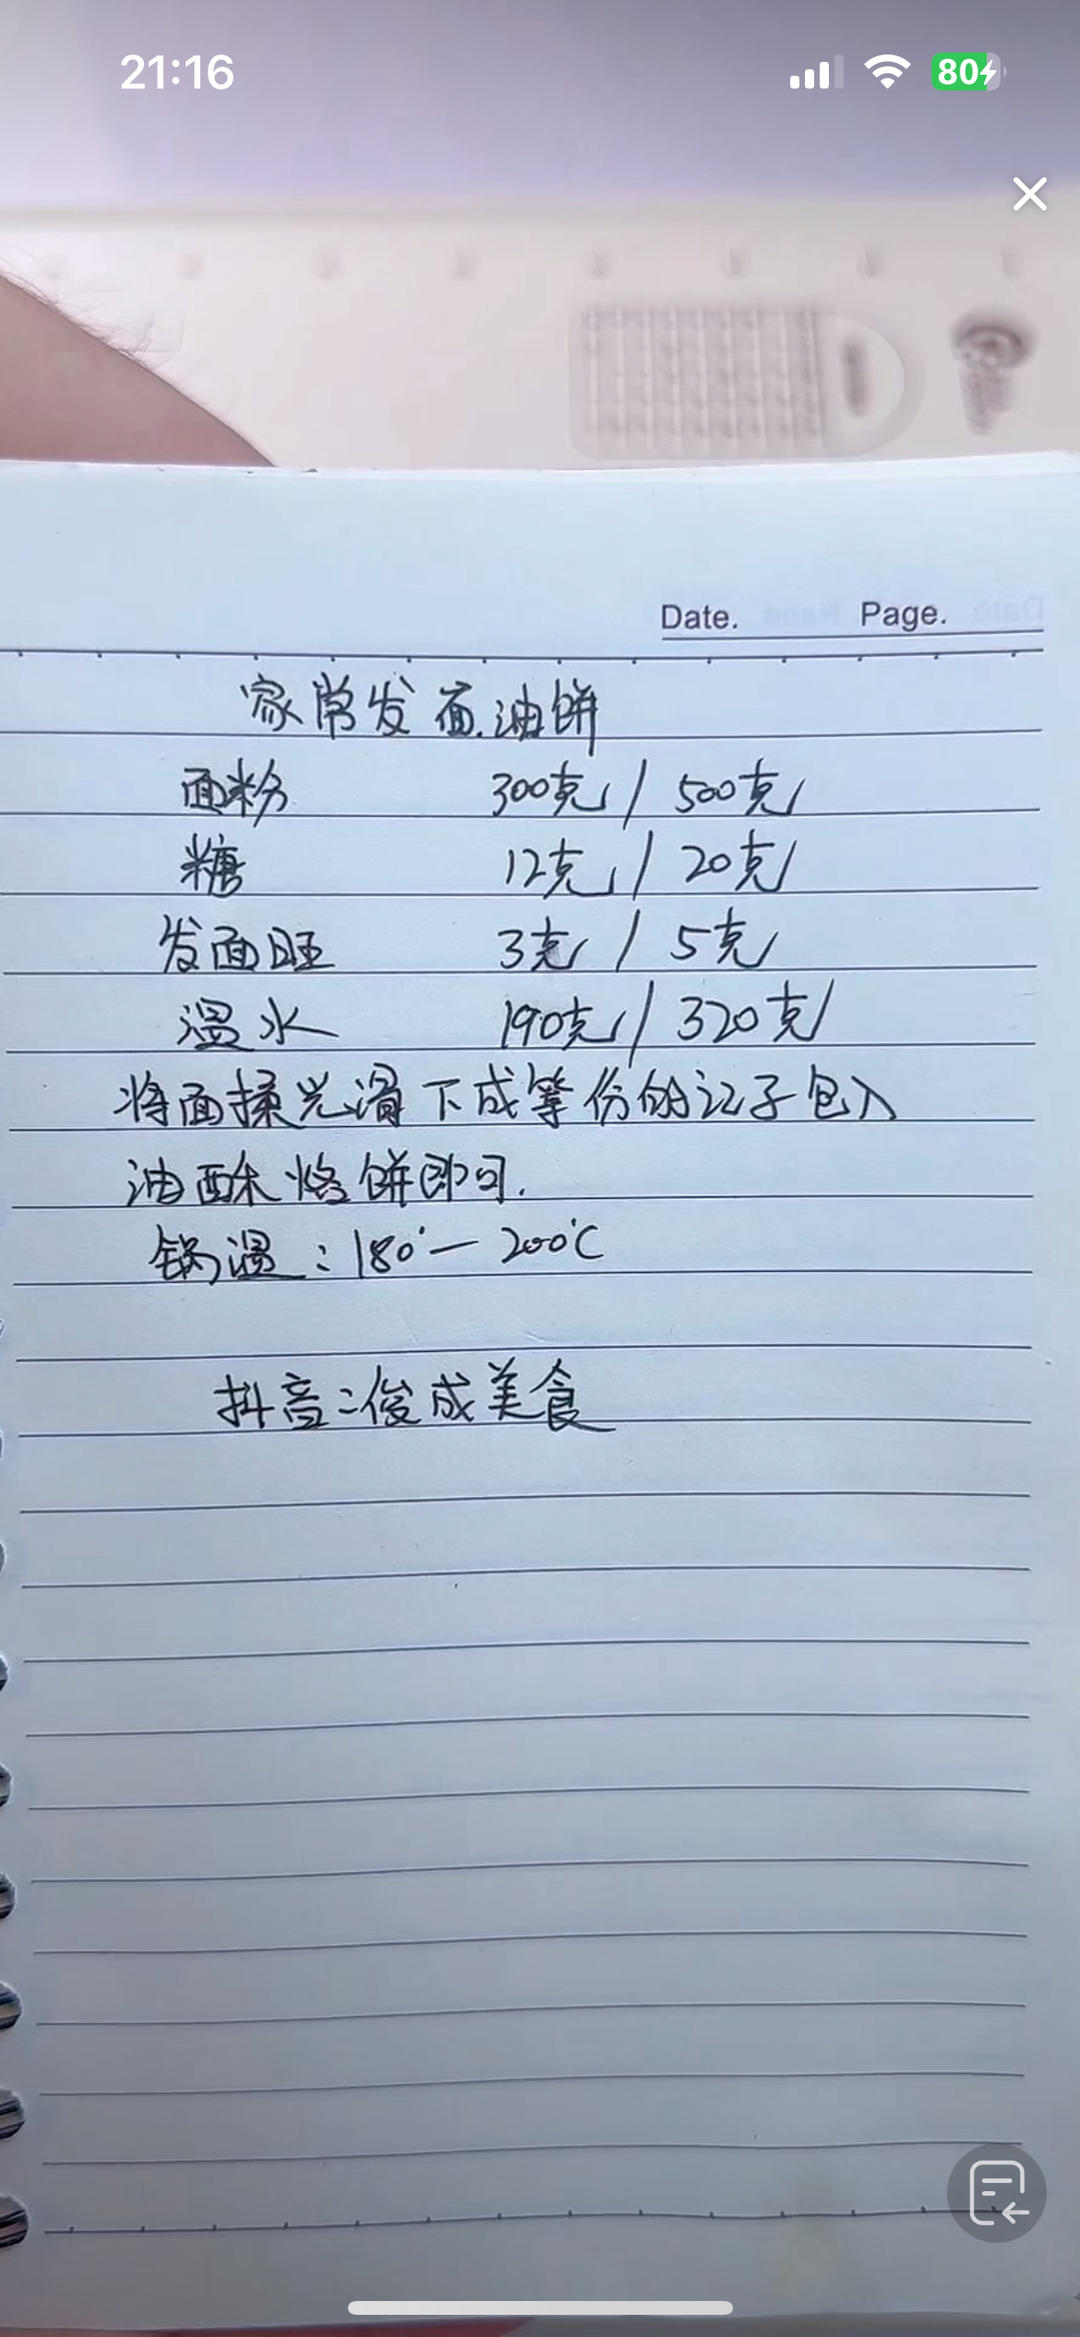 21:16
80
Date. Page.
家常发面油饼
面粉 300克 / 500克
糖 12克 / 20克
发面旺 3克 / 5克
温水 190克 / 320克
将面揉光滑下成等份的记子包入
油酥烙饼即可.
锅温:180°— 200℃
抖音:俊成美食